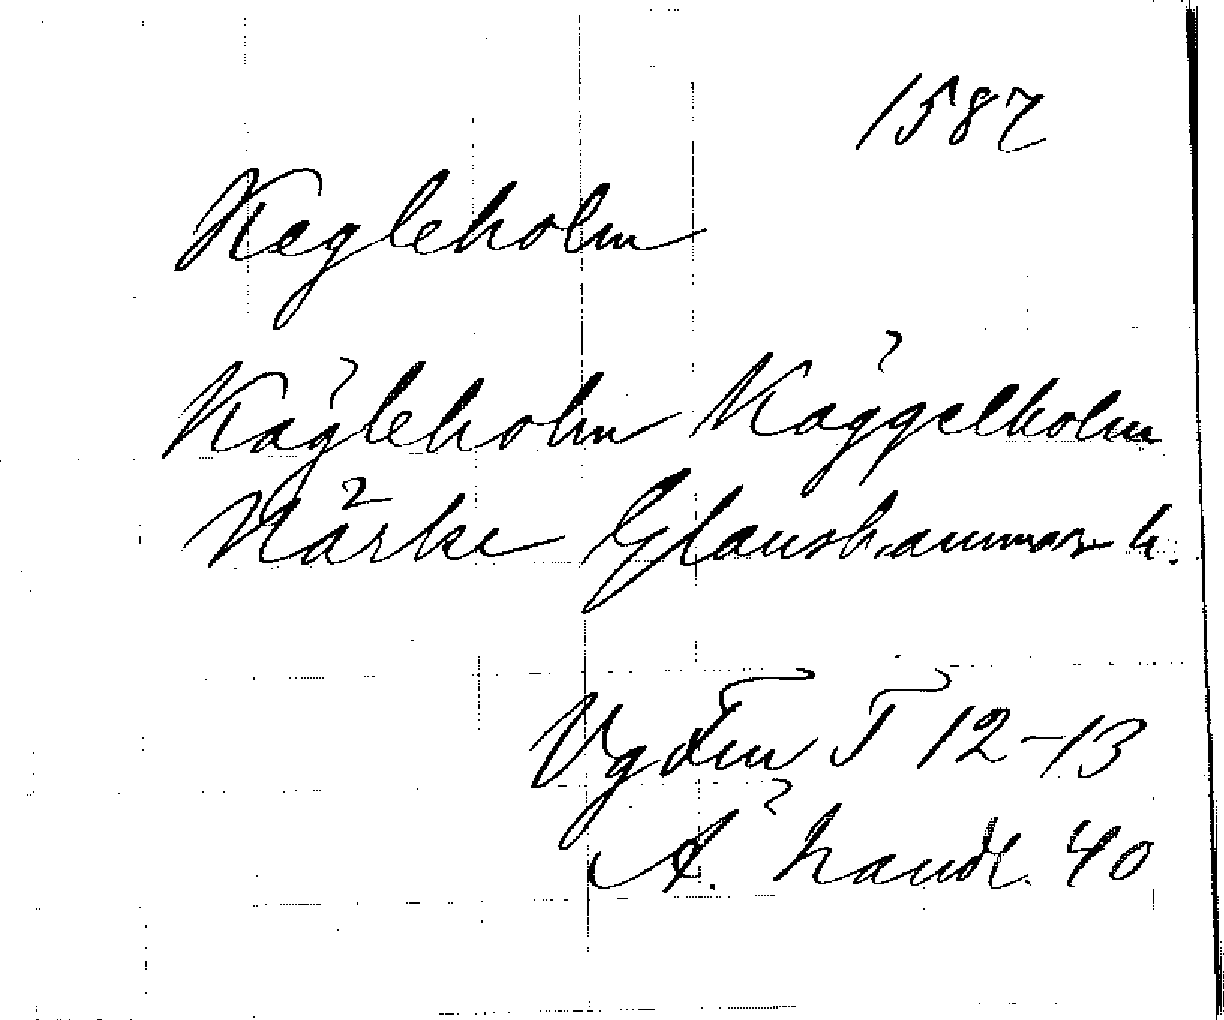 1587
Kegleholm
Kägleholm Käggelholm
Närke Glanshammar h.
Vg
Ä. handl. 40